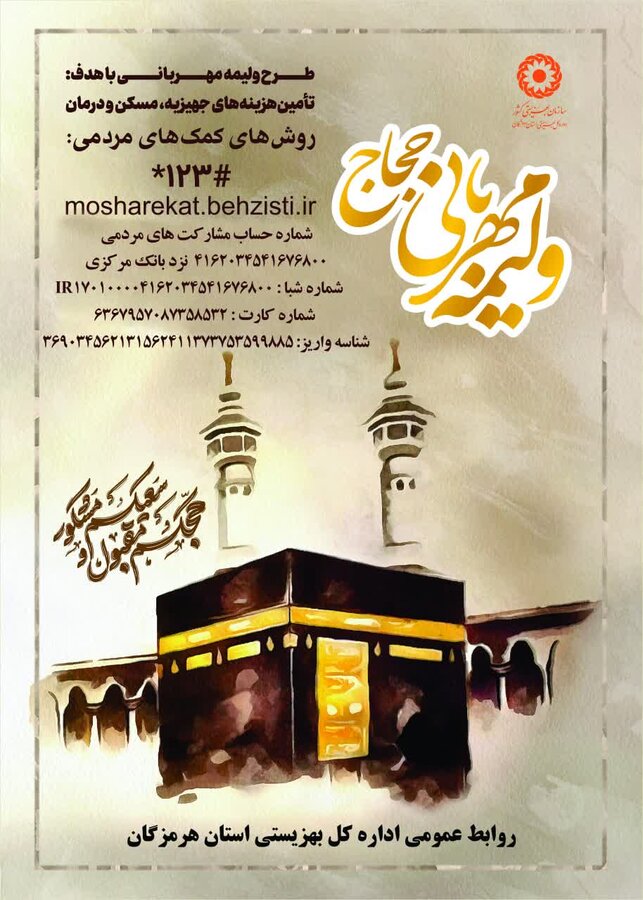 سازمان بهزیستی کشور
طرح ولیمه مهربانی با هدف:
تأمین هزینه‌های جهیزیه، مسکن و درمان
روش‌های کمک‌های مردمی:
*۱۲۳#
mosharekat.behzisti.ir
شماره حساب مشارکت های مردمی
۴۱۶۲۰۳۴۵۴۱۶۷۶۸۰۰ نزد بانک مرکزی
شماره شبا : IR۱۷۰۱۰۰۰۰۴۱۶۲۰۳۴۵۴۱۶۷۶۸۰۰
شماره کارت : ۶۳۶۷۹۵۷۰۸۷۳۵۸۵۳۲
شناسه واریز: ۳۶۹۰۳۴۵۶۲۱۳۱۵۶۲۴۱۱۳۷۳۷۵۳۵۹۹۸۸۵
ولیمه مهربانی حجاج
حجکم مقبول و
سعیکم مشکور
روابط عمومی اداره کل بهزیستی استان هرمزگان